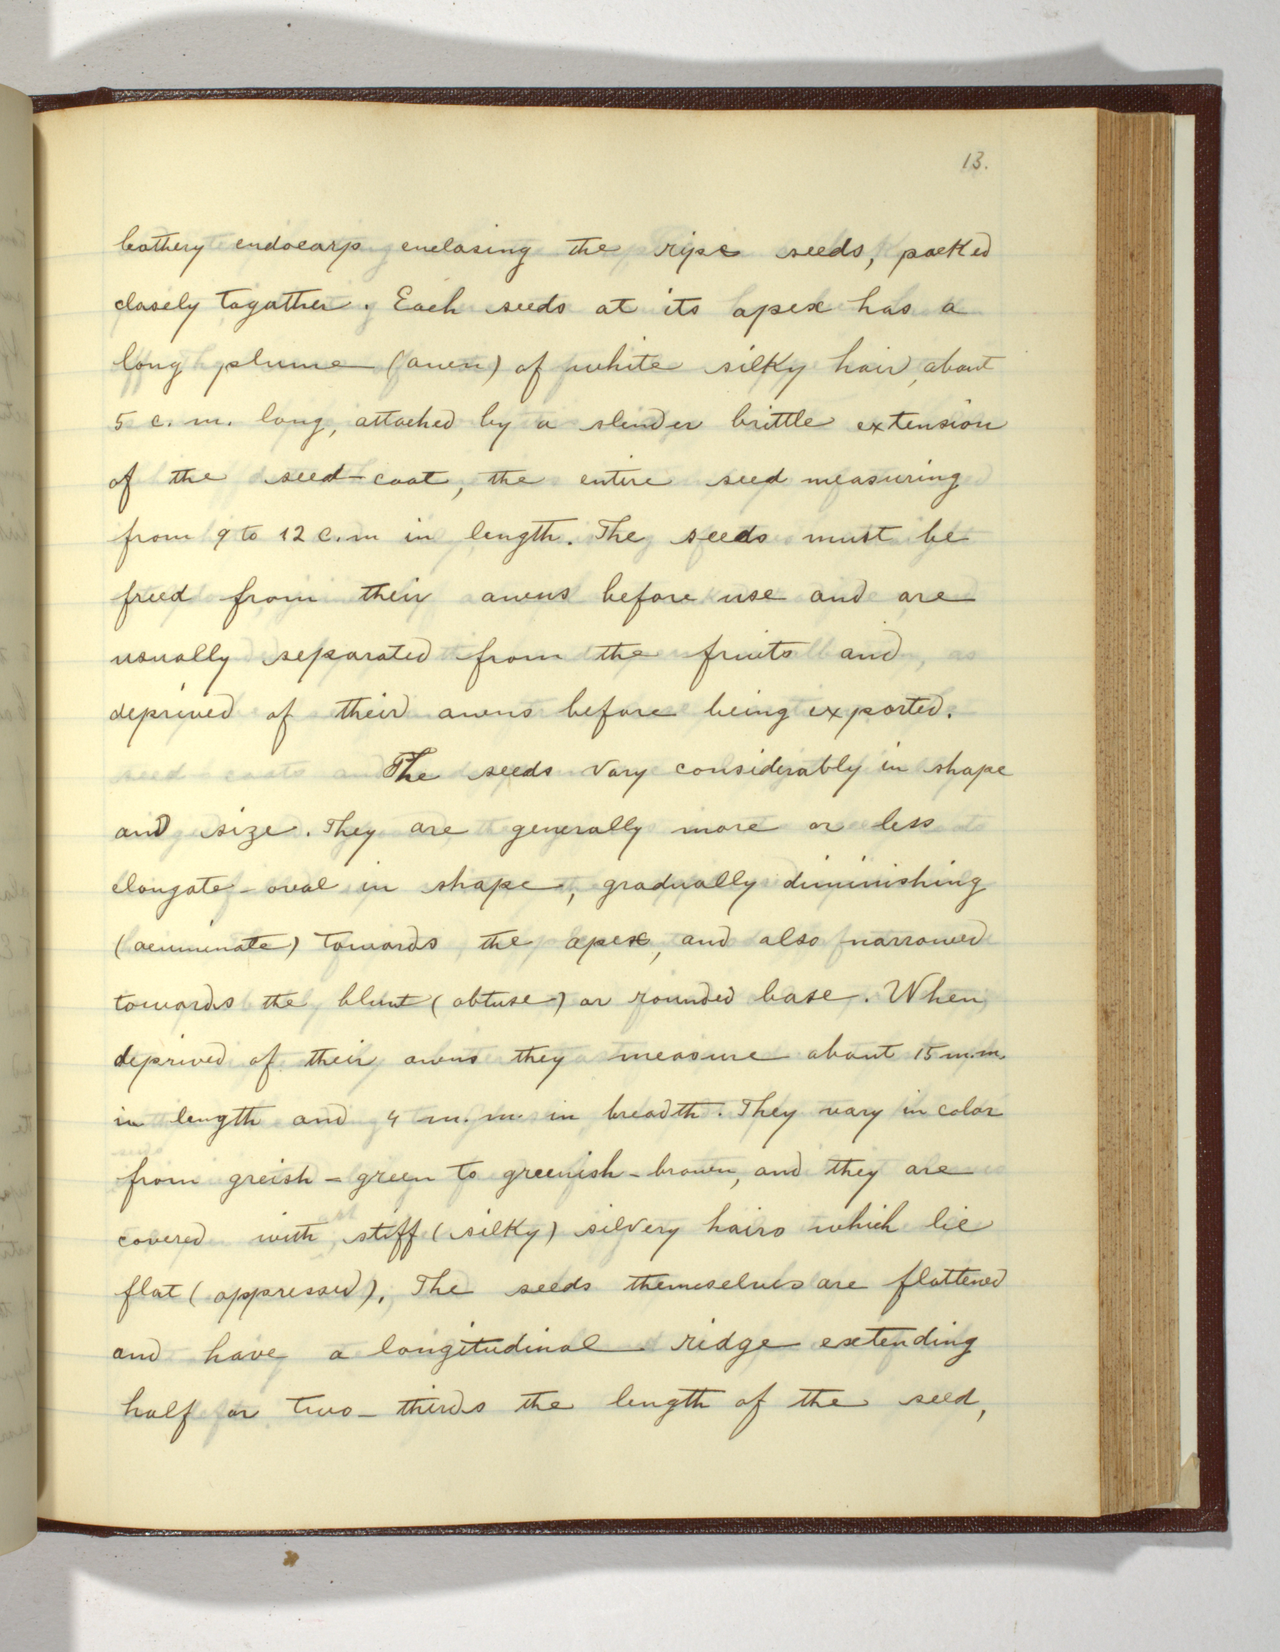 13.
leathery endocarp enclosing the ripe seeds, packed
closely togather. Each seeds at its apex has a
long plume (awn) of white silky hair, about
5 c.m. long, attached by a slender brittle extension
of the seed-coat, the entire seed measuring
from 9 to 12 c.m in length. The seeds must be
freed from their awns before use and are
usually separated from the fruits and
deprived of their awns before being exported.
The seeds vary considerably in shape
and size. They are generally more or less
elongate-oval in shape, gradually diminishing
(acuminate) towards the apex, and also narrowed
towards the blunt (obtuse) or rounded base. When
deprived of their awns they measure about 15 m.m.
in length and 4 m.m. in breadth. They vary in color
from greish-green to greenish-brown, and they are
covered with stiff (silky) silvery hairs which lie
flat (appressed). The seeds themselves are flattened
and have a longitudinal ridge extending
half or two-thirds the length of the seed,